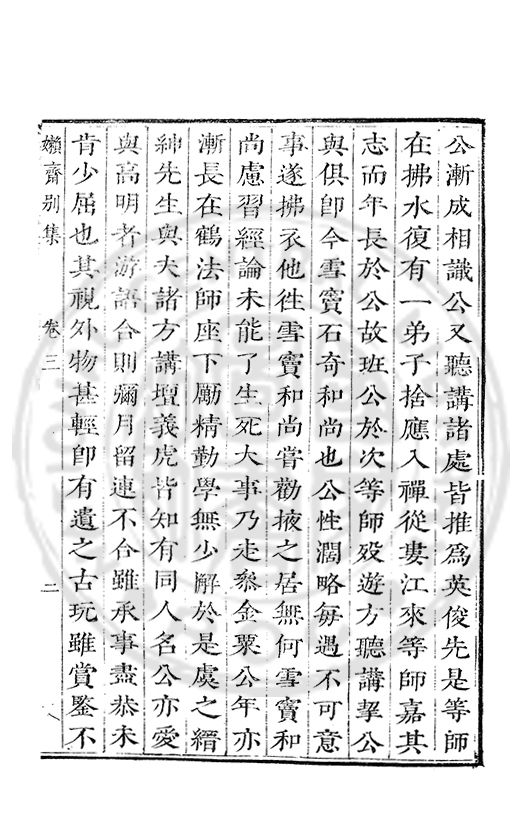 公漸成相識公又聽講諸處皆推爲英俊先是等師
在拂水復有一弟子捨應入禪從婁江來等師嘉其
志而年長於公故班公於次等師歿遊方聽講挈公
與俱卽今雪竇石奇和尚也公性濶略每遇不可意
事遂拂衣他往雪竇和尚嘗勸掖之居無何雪竇和
尚慮習經論未能了生死大事乃走叅金粟公年亦
漸長在鶴法師座下勵精勤學無少解於是虞之縉
紳先生與夫諸方講壇義虎皆知有同人名公亦愛
與高明者游語合則彌月留連不合雖承事盡恭未
肯少屈也其視外物甚輕卽有遺之古玩雖賞鑒不
嬾齋别集
卷三
二